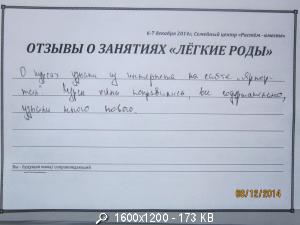 6-7 декабря 2014г, Семейный центр «Растём - вместе»
ОТЗЫВЫ О ЗАНЯТИЯХ «ЛЁГКИЕ РОДЫ»
О курсах узнали из интернета на сайте
Курсы очень понравились, все содержательно,
узнали много нового.
Вы - будущая мама/ сопровождающий
08/12/2014
1600x1200 - 173 KB